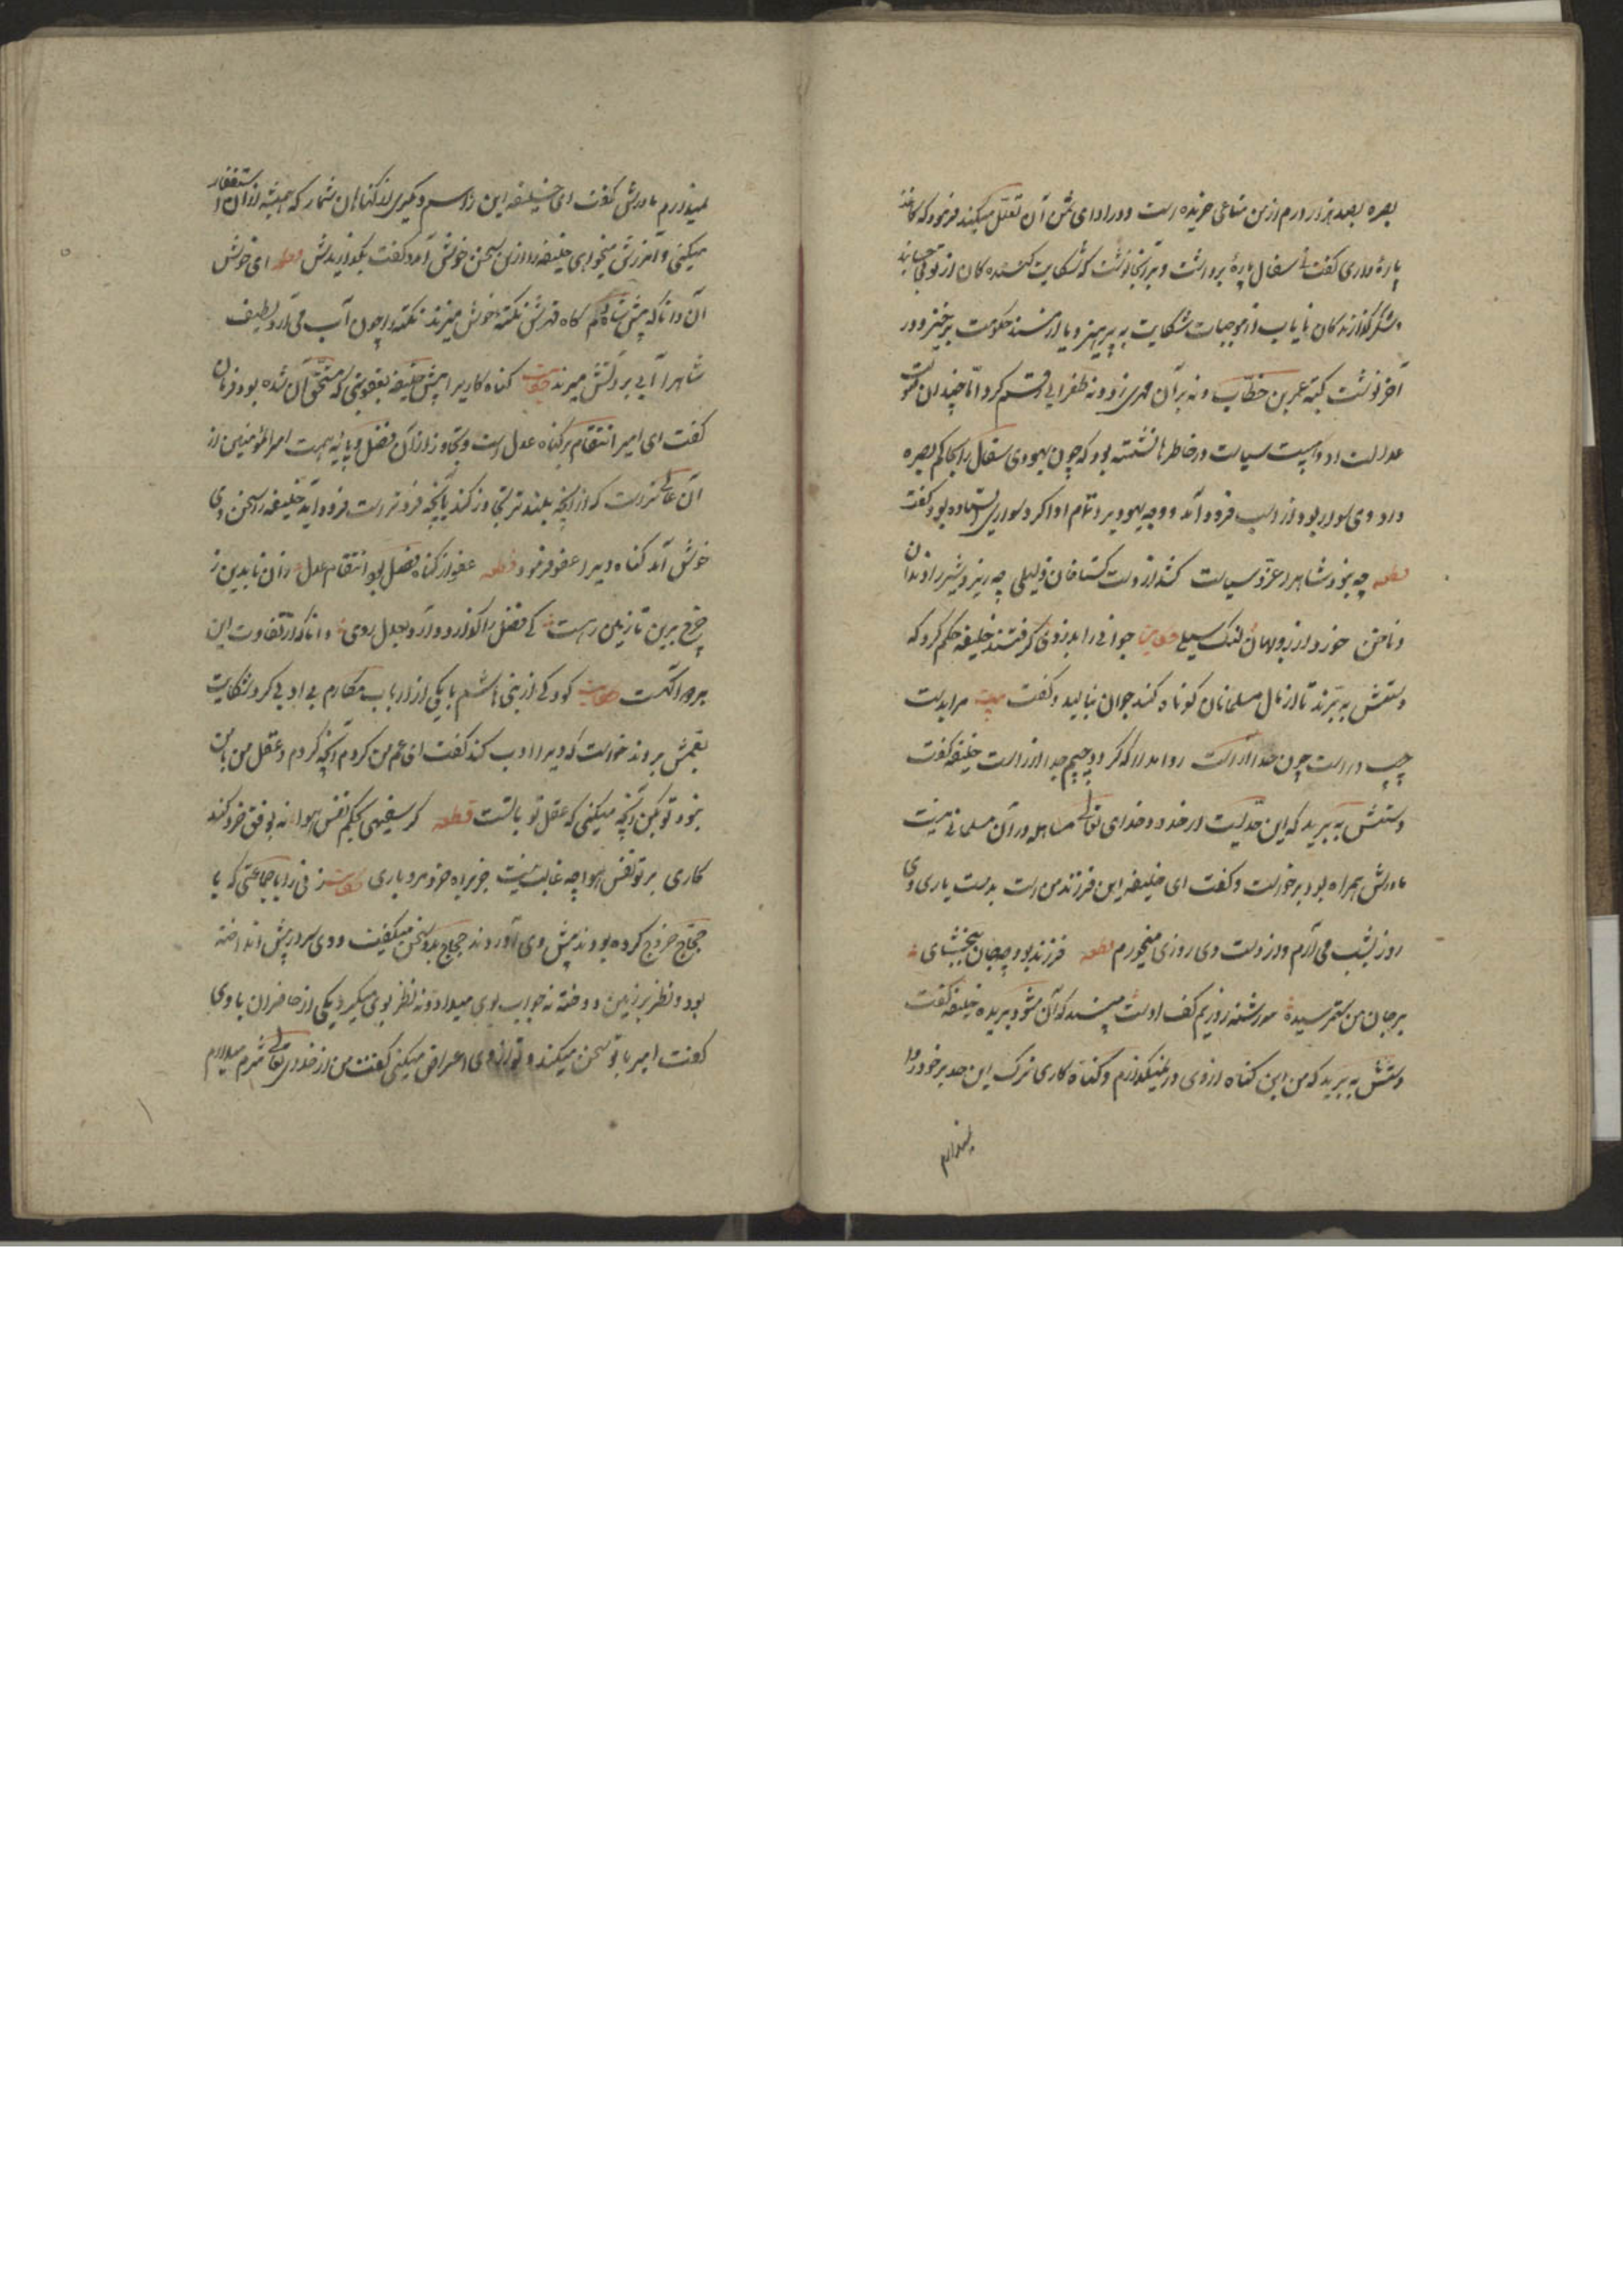 بصره بصد هزار درم از من متاعی خریده است و در ادای ثمن آن تعلل میکند فرمود که کاغذ
پارهٔ داری گفت نی سفال پارهٔ برداشت و بر آنجا نوشت که شکایت کنندگان از تو بی حسابند
و شکرگذارندگان نایاب از موجبات شکایت به پرهیز و یا از مسند حکومت برخیز و در
آخر نوشت کتبه عمر بن خطاب و نه بر آن مهری زد و نه طغرایی رقم کرد اما چندان صولت
عدالت او و هیبت سیاست در خاطرها نشسته بود که چون یهودی سفال را بحاکم بصره
داد وی سوار بود از اسب فرود آمد و وجه یهودی را تمام ادا کرد و وی سواره ایستاده بود گفت
قطعه چه بود شاه را عز و سیاست کشد از دست گستاخان ذلیلی چه ریزد شیر را دندان
و ناخن خورد از روبهان لنگ سیلی حکایت جوانی را بدزدی گرفتند خلیفه حکم کرد که
دستش به برند تا از مال مسلمانان کوتاه کند جوان بنالید و گفت بیت مرا بدست
چپ و راست چون خدا آراست روا مدار که گردد چپم جدا از راست خلیفه گفت
دستش به برید که این حدیست از حدود خدای تعالی مساهله در آن مسلمانی نیست
مادرش همراه بود برخواست و گفت ای خلیفه این فرزند من است بدست یاری وی
روز بشب می آرم و از دست وی روزی میخورم قطعه فرزند بود چو جان ببخشای
بر جان من ستم رسیده سررشته روزیم کف اوست مپسند که آن شود بریده خلیفه گفت
دستش به برید که من این گناه از وی در نمیگذارم و گناه کاری ترک این حد بر خود روا
نمیدارم
نمیدارم مادرش گفت ای خلیفه این را هم دیگری از گناهان شمار که همیشه از آن استغفار
میکنی و آمرزش میخواهی خلیفه را از این سخن خوش آمد و گفت بگذاریدش قطعه ای خوش
آن دانا که پیش شاه گاه قهرش نکته خوش میزند نکته را چون آب می آرد لطیف
شاه را آبی بر آتش میزند حکایت گناه کاری را پیش خلیفه بعقوبتی که مستحق آن شده بود فرمان
گفت ای امیر انتقام بر گناه عدل است و تجاوز از آن فضل و پایه همت امیرالمؤمنین از
آن عالی تر است که از آنچه بلندتر تجاوز کند بآنچه فروتر است فرود آید خلیفه را سخن وی
خوش آمد گناه ویرا عفو فرمود قطعه عفو از گناه فضل بود انتقام عدل زان تا بدین ز
چرخ برین تا زمین رهست کی فضل را گذارد و آرد بعدل روی دانا که از تفاوت این
هر دو آگهست حکایت کودکی از بنی هاشم با یکی از ارباب مکارم بی ادبی کرد شکایت
بعمش بردند خواست که ویرا ادب کند گفت ای عم من کردم آنچه کردم و عقل من با من
نبود تو بکن آنچه میکنی که عقل تو با تست قطعه گر سفیهی بحکم نفس و هوا نه بوفق خرد کند
کاری بر تو نفس و هوا چو غالب نیست جز براه خرد مرو باری حکایت زنی را با جماعتی که با
حجاج خروج کرده بودند پیش وی آوردند حجاج با وی سخن میگفت و وی سر در پیش انداخته
بود و نظر بر زمین دوخته نه جواب بوی میداد و نه نظر بوی میکرد یکی از حاضران با وی
گفت امیر با تو سخن میکند و تو از وی اعراض میکنی گفت من از خدای تعالی شرم میدارم